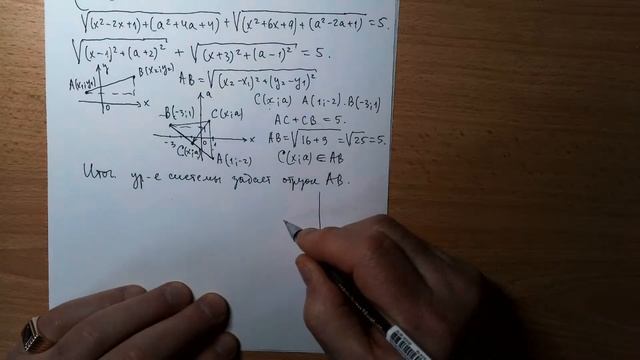 √(x²-2x+1)+(a²+4a+4) + √(x²+6x+9)+(a²-2a+1) = 5.
√(x-1)²+(a+2)² + √(x+3)²+(a-1)² = 5.
A(x₁;y₁) y B(x₂;y₂) 0 x
AB = √(x₂-x₁)²+(y₂-y₁)²
a B(-3;1) C(x;a) -3 0 1 x C(x;a) A(1;-2)
C(x;a) A(1;-2) B(-3;1)
AC+CB = 5.
AB = √16+9 = √25 = 5.
C(x;a) ∈ AB
Итог ур-е системы задает отрезок AB.